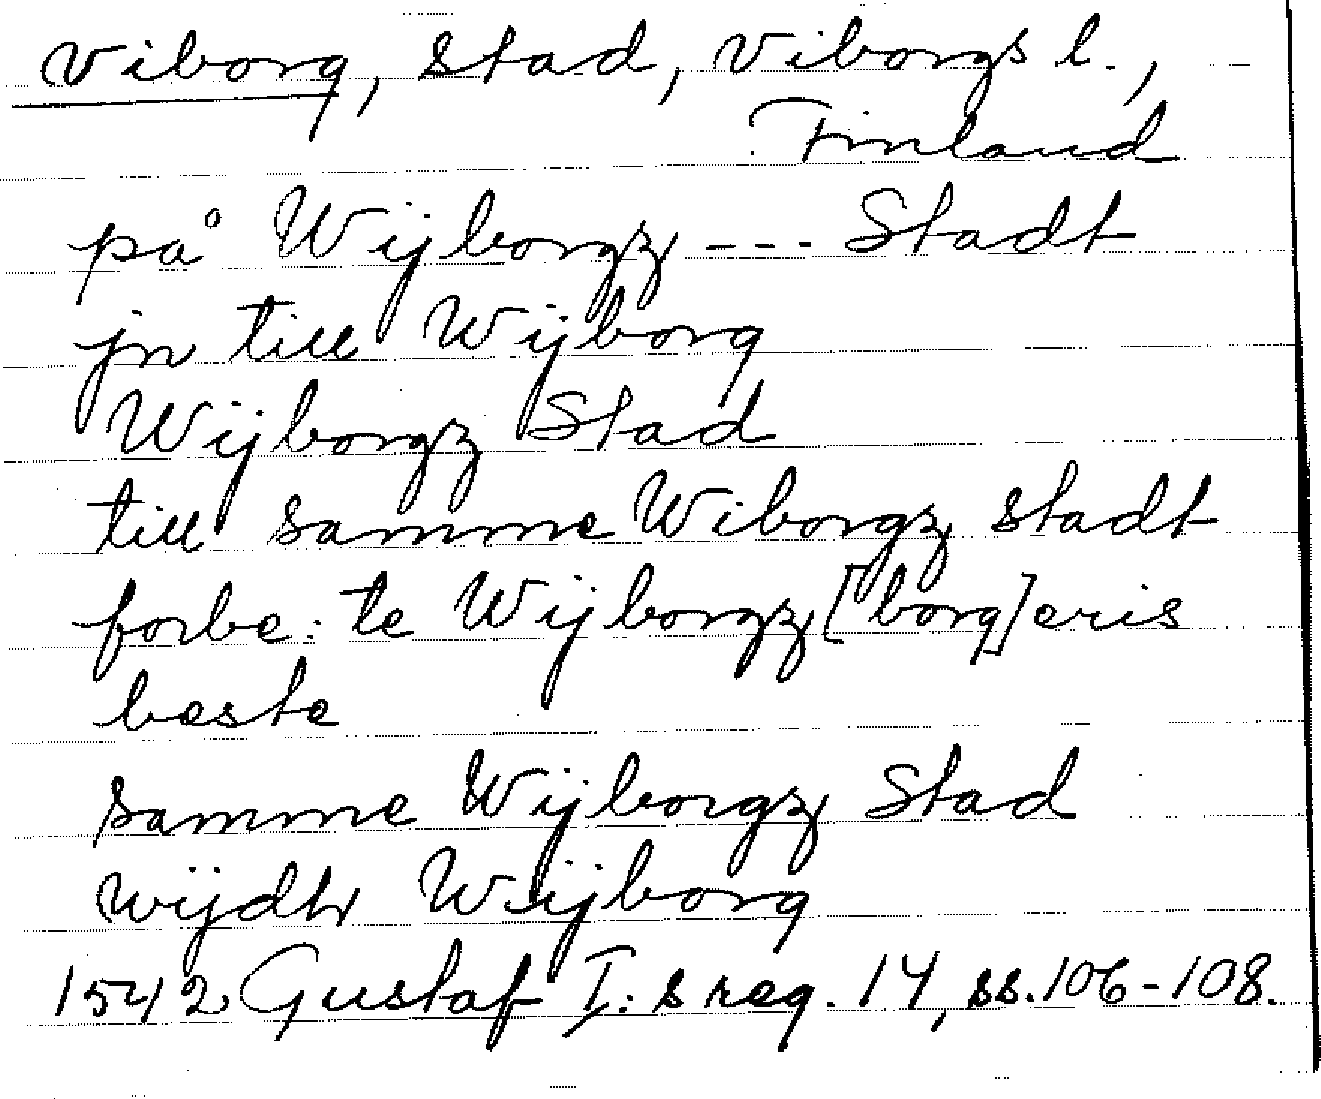 Viborg, stad, Viborgs l.,
Finland
på Wijborgz --- Stadt
jn till Wijborg
Wijborgz Stad
till samme Wiborgz stadt
forbe:te Wijborgz [borg]eris
beste
samme Wijborgz Stad
wijdh Wijborg
1542 Gustaf I:s reg. 14, ss. 106-108.